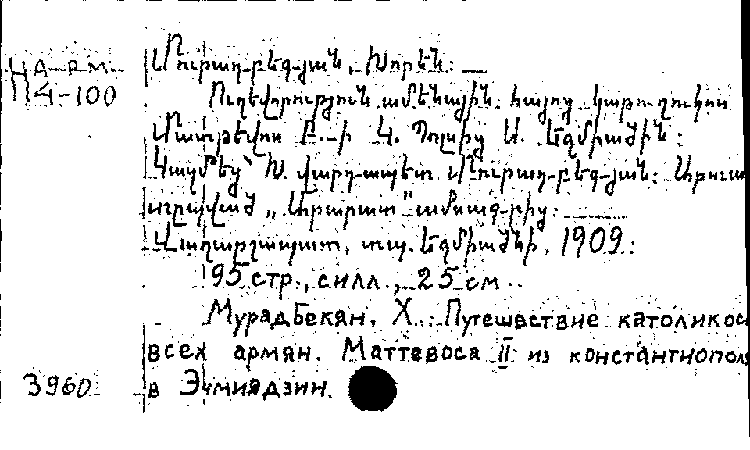 На-рм Մուրադ-բեգ-յան, Խորէն: —
П4-100 Ուղեվորություն ամենայն. հայոց կաթուղիկոս
Մատթէվոս Բ.-ի Կ. Պոլսից Ս. Եգմիածին:
Կազմեց՝ Խ. վարդապետ Մուրադ-բեգ-յան: Արտա
տըպված „Արարատ" ամսագրից:
Վաղարշապատ, տպ. Եգմիածնի, 1909:
95 стр., с илл., 25 см.
Мурадбекян. Х. Путешествие католикос
всех армян. Маттевоса II из константинопол
3960 в Эчмиадзин.